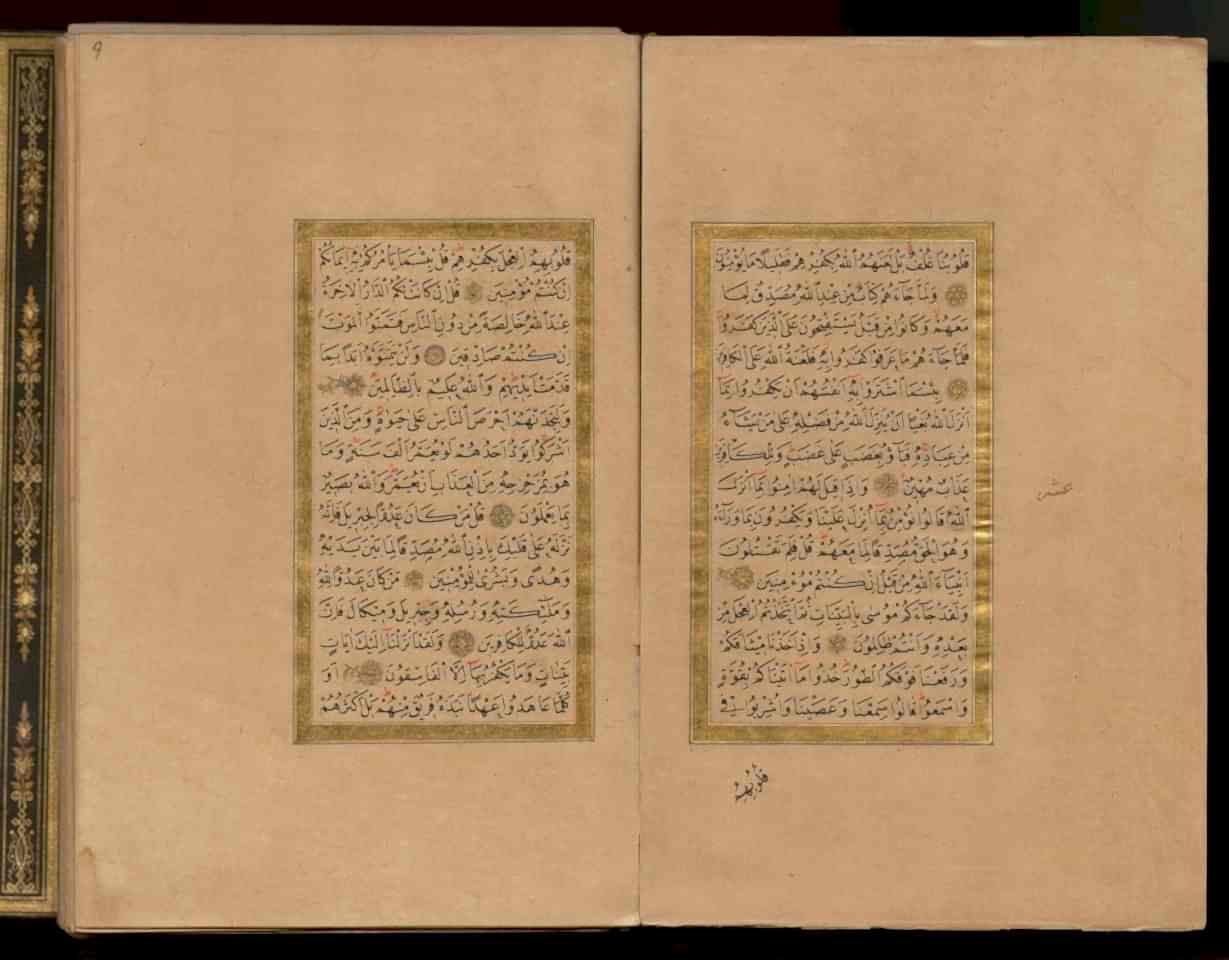 قُلُوبُنَا غُلْفٌ بَلْ لَعَنَهُمُ اللّٰهُ بِكُفْرِهِمْ فَقَلِيلًا مَا يُؤْمِنُونَ
وَلَمَّا جَاءَهُمْ كِتَابٌ مِنْ عِنْدِ اللّٰهِ مُصَدِّقٌ لِمَا
مَعَهُمْ وَكَانُوا مِنْ قَبْلُ يَسْتَفْتِحُونَ عَلَى الَّذِينَ كَفَرُوا
فَلَمَّا جَاءَهُمْ مَا عَرَفُوا كَفَرُوا بِهِ فَلَعْنَةُ اللّٰهِ عَلَى الْكَافِرِينَ
بِئْسَمَا اشْتَرَوْا بِهِ أَنْفُسَهُمْ أَنْ يَكْفُرُوا بِمَا
أَنْزَلَ اللّٰهُ بَغْيًا أَنْ يُنَزِّلَ اللّٰهُ مِنْ فَضْلِهِ عَلَى مَنْ يَشَاءُ
مِنْ عِبَادِهِ فَبَاؤُ بِغَضَبٍ عَلَى غَضَبٍ وَلِلْكَافِرِينَ
عَذَابٌ مُهِينٌ وَإِذَا قِيلَ لَهُمْ اٰمِنُوا بِمَا أَنْزَلَ
اللّٰهُ قَالُوا نُؤْمِنُ بِمَا أُنْزِلَ عَلَيْنَا وَيَكْفُرُونَ بِمَا وَرَاءَهُ
وَهُوَ الْحَقُّ مُصَدِّقًا لِمَا مَعَهُمْ قُلْ فَلِمَ تَقْتُلُونَ
أَنْبِيَاءَ اللّٰهِ مِنْ قَبْلُ إِنْ كُنْتُمْ مُؤْمِنِينَ
وَلَقَدْ جَاءَكُمْ مُوسٰى بِالْبَيِّنَاتِ ثُمَّ اتَّخَذْتُمُ الْعِجْلَ مِنْ
بَعْدِهِ وَأَنْتُمْ ظَالِمُونَ وَإِذْ أَخَذْنَا مِيثَاقَكُمْ
وَرَفَعْنَا فَوْقَكُمُ الطُّورَ خُذُوا مَا اٰتَيْنَاكُمْ بِقُوَّةٍ
وَاسْمَعُوا قَالُوا سَمِعْنَا وَعَصَيْنَا وَأُشْرِبُوا فِي
قُلُوبِهِمُ
عشر
قُلُوبِهِمُ الْعِجْلَ بِكُفْرِهِمْ قُلْ بِئْسَمَا يَأْمُرُكُمْ بِهِ إِيمَانُكُمْ
إِنْ كُنْتُمْ مُؤْمِنِينَ قُلْ إِنْ كَانَتْ لَكُمُ الدَّارُ الْاٰخِرَةُ
عِنْدَ اللّٰهِ خَالِصَةً مِنْ دُونِ النَّاسِ فَتَمَنَّوُا الْمَوْتَ
إِنْ كُنْتُمْ صَادِقِينَ وَلَنْ يَتَمَنَّوْهُ أَبَدًا بِمَا
قَدَّمَتْ أَيْدِيهِمْ وَاللّٰهُ عَلِيمٌ بِالظَّالِمِينَ
وَلَتَجِدَنَّهُمْ أَحْرَصَ النَّاسِ عَلَى حَيٰوةٍ وَمِنَ الَّذِينَ
أَشْرَكُوا يَوَدُّ أَحَدُهُمْ لَوْ يُعَمَّرُ أَلْفَ سَنَةٍ وَمَا
هُوَ بِمُزَحْزِحِهِ مِنَ الْعَذَابِ أَنْ يُعَمَّرَ وَاللّٰهُ بَصِيرٌ
بِمَا يَعْمَلُونَ قُلْ مَنْ كَانَ عَدُوًّا لِجِبْرِيلَ فَإِنَّهُ
نَزَّلَهُ عَلَى قَلْبِكَ بِإِذْنِ اللّٰهِ مُصَدِّقًا لِمَا بَيْنَ يَدَيْهِ
وَهُدًى وَبُشْرٰى لِلْمُؤْمِنِينَ مَنْ كَانَ عَدُوًّا لِلّٰهِ
وَمَلٰئِكَتِهِ وَرُسُلِهِ وَجِبْرِيلَ وَمِيكَالَ فَإِنَّ
اللّٰهَ عَدُوٌّ لِلْكَافِرِينَ وَلَقَدْ أَنْزَلْنَا إِلَيْكَ اٰيَاتٍ
بَيِّنَاتٍ وَمَا يَكْفُرُ بِهَا إِلَّا الْفَاسِقُونَ أَوَ
كُلَّمَا عَاهَدُوا عَهْدًا نَبَذَهُ فَرِيقٌ مِنْهُمْ بَلْ أَكْثَرُهُمْ
9